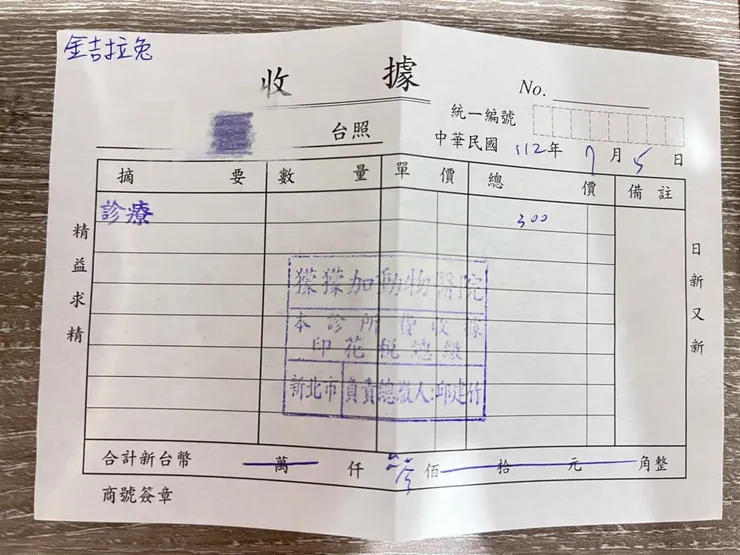 金吉拉兔
收 據
No.
統一編號
台照
中華民國 112年 7月 5日
摘 要 數 量 單 價 總 價 備 註
診療 300
精益求精
日新又新
獴獴加動物醫院
本診所費收據
印花稅總繳
新北市 負責總繳人:邱建竹
合計新台幣 萬 仟 佰 拾 元 角整
商號簽章